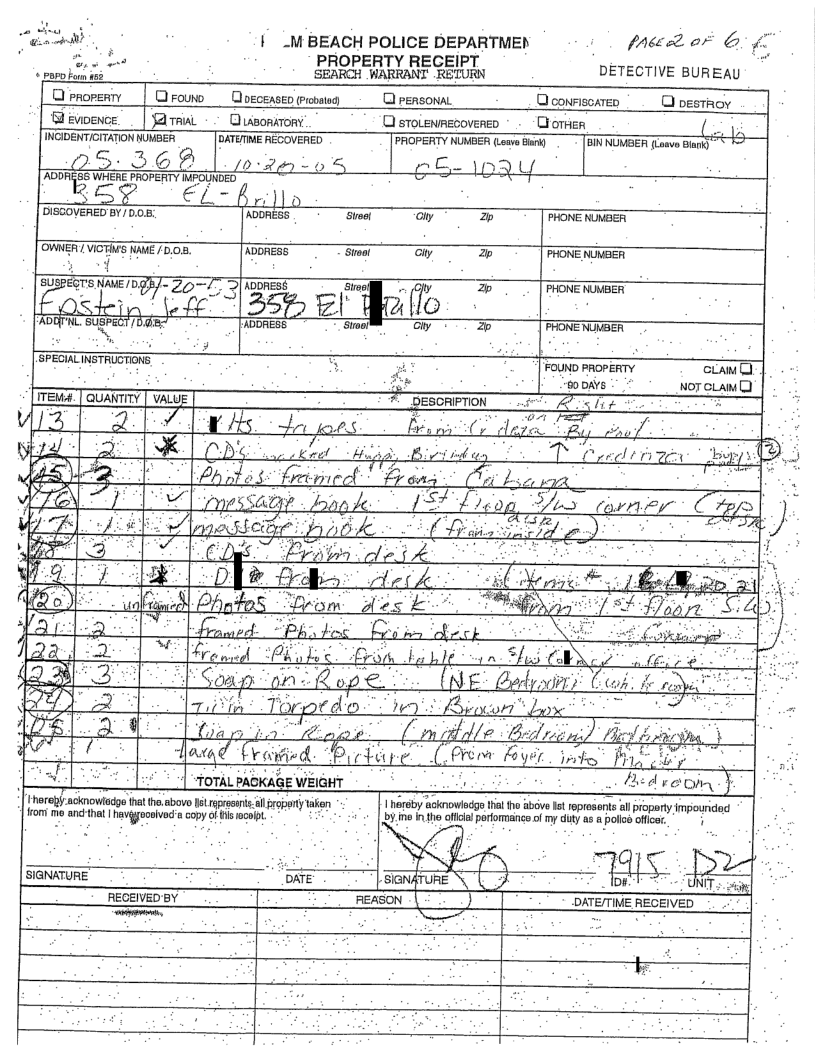 PAGE 2 OF 6
M BEACH POLICE DEPARTMEN
PROPERTY RECEIPT
SEARCH WARRANT RETURN
DETECTIVE BUREAU
PBPD Form #52
PROPERTY FOUND DECEASED (Probated) PERSONAL CONFISCATED DESTROY
EVIDENCE TRIAL LABORATORY STOLEN/RECOVERED OTHER
INCIDENT/CITATION NUMBER DATE/TIME RECOVERED PROPERTY NUMBER (Leave Blank) BIN NUMBER (Leave Blank)
05-368 10-20-05 05-1024
ADDRESS WHERE PROPERTY IMPOUNDED
358 EL-Brillo
DISCOVERED BY / D.O.B. ADDRESS Street City Zip PHONE NUMBER
OWNER / VICTIM'S NAME / D.O.B. ADDRESS Street City Zip PHONE NUMBER
SUSPECT'S NAME / D.O.B. 01-20-53 ADDRESS Street City Zip PHONE NUMBER
Epstein Jeff 358 El
ADDT'NL. SUSPECT / D.O.B. ADDRESS Street City Zip PHONE NUMBER
SPECIAL INSTRUCTIONS FOUND PROPERTY CLAIM
90 DAYS NOT CLAIM
ITEM# QUANTITY VALUE DESCRIPTION
on Right
13 2 tapes from By Pool
14 2 CD's marked Happy Birthday Credenza
15 3 Photos framed from Cabana
16 1 message book 1st floor S/W corner (top desk)
17 1 message book (from inside desk)
18 3 CD's from desk
19 1 from desk (items # 20 21
20 unframed Photos from desk from 1st floor S.W.
21 2 framed Photos from desk
22 2 framed Photos from table in S/W office
23 3 Soap on Rope (NE Bedroom)
24 2 Torpedo in Brown box
25 2 Soap on Rope (middle Bedroom)
1 Large framed Picture (from foyer into Master
Bedroom)
TOTAL PACKAGE WEIGHT
I hereby acknowledge that the above list represents all property taken
from me and that I have received a copy of this receipt.
I hereby acknowledge that the above list represents all property impounded
by me in the official performance of my duty as a police officer.
7915 D2
SIGNATURE DATE SIGNATURE ID# UNIT
RECEIVED BY REASON DATE/TIME RECEIVED